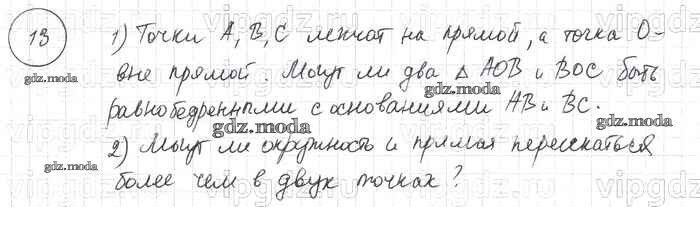 13
1) Точки A, B, C лежат на прямой, а точка O-
вне прямой. Могут ли два △ AOB и BOC быть
равнобедренными с основаниями AB и BC.
2) Могут ли окружность и прямая пересекаться
более чем в двух точках?
gdz.moda
gdz.moda
gdz.moda
gdz.moda
gdz.moda
gdz.moda
vipgdz.ru
vipgdz.ru
vipgdz.ru